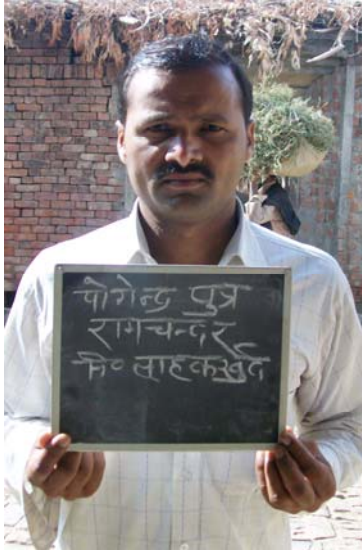 योगेन्द्र पुत्र
रामचन्दर
नि० लाहकखुर्द